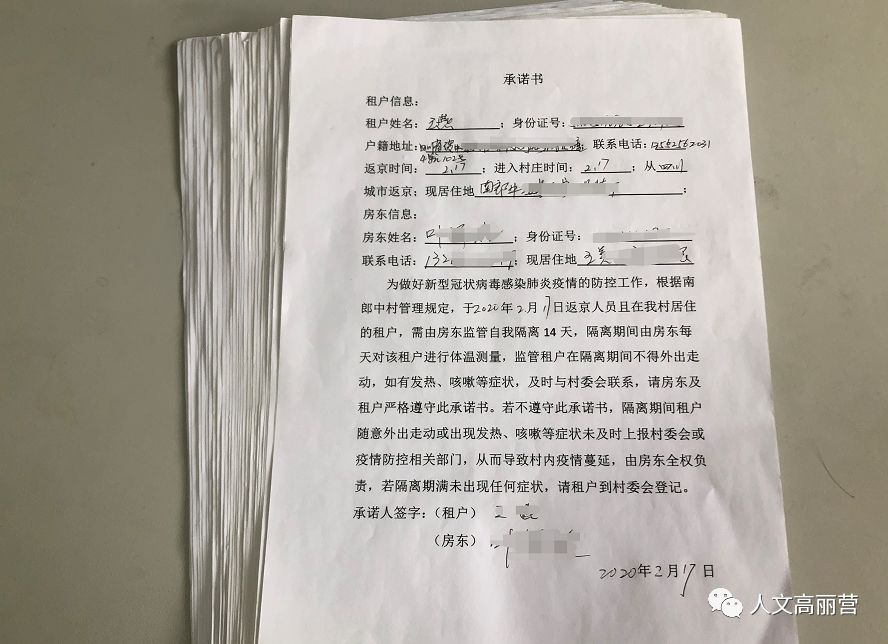 承诺书
租户信息：
租户姓名：；身份证号：
户籍地址：联系电话：
返京时间：2.17；进入村庄时间：2.17；从四川
城市返京；现居住地；
房东信息：
房东姓名：；身份证号：
联系电话：132；现居住地
为做好新型冠状病毒感染肺炎疫情的防控工作，根据南
郎中村管理规定，于2020年2月17日返京人员且在我村居住
的租户，需由房东监管自我隔离14天，隔离期间由房东每
天对该租户进行体温测量，监管租户在隔离期间不得外出走
动，如有发热、咳嗽等症状，及时与村委会联系，请房东及
租户严格遵守此承诺书。若不遵守此承诺书，隔离期间租户
随意外出走动或出现发热、咳嗽等症状未及时上报村委会或
疫情防控相关部门，从而导致村内疫情蔓延，由房东全权负
责，若隔离期满未出现任何症状，请租户到村委会登记。
承诺人签字：（租户）
（房东）
2020年2月17日
人文高丽营